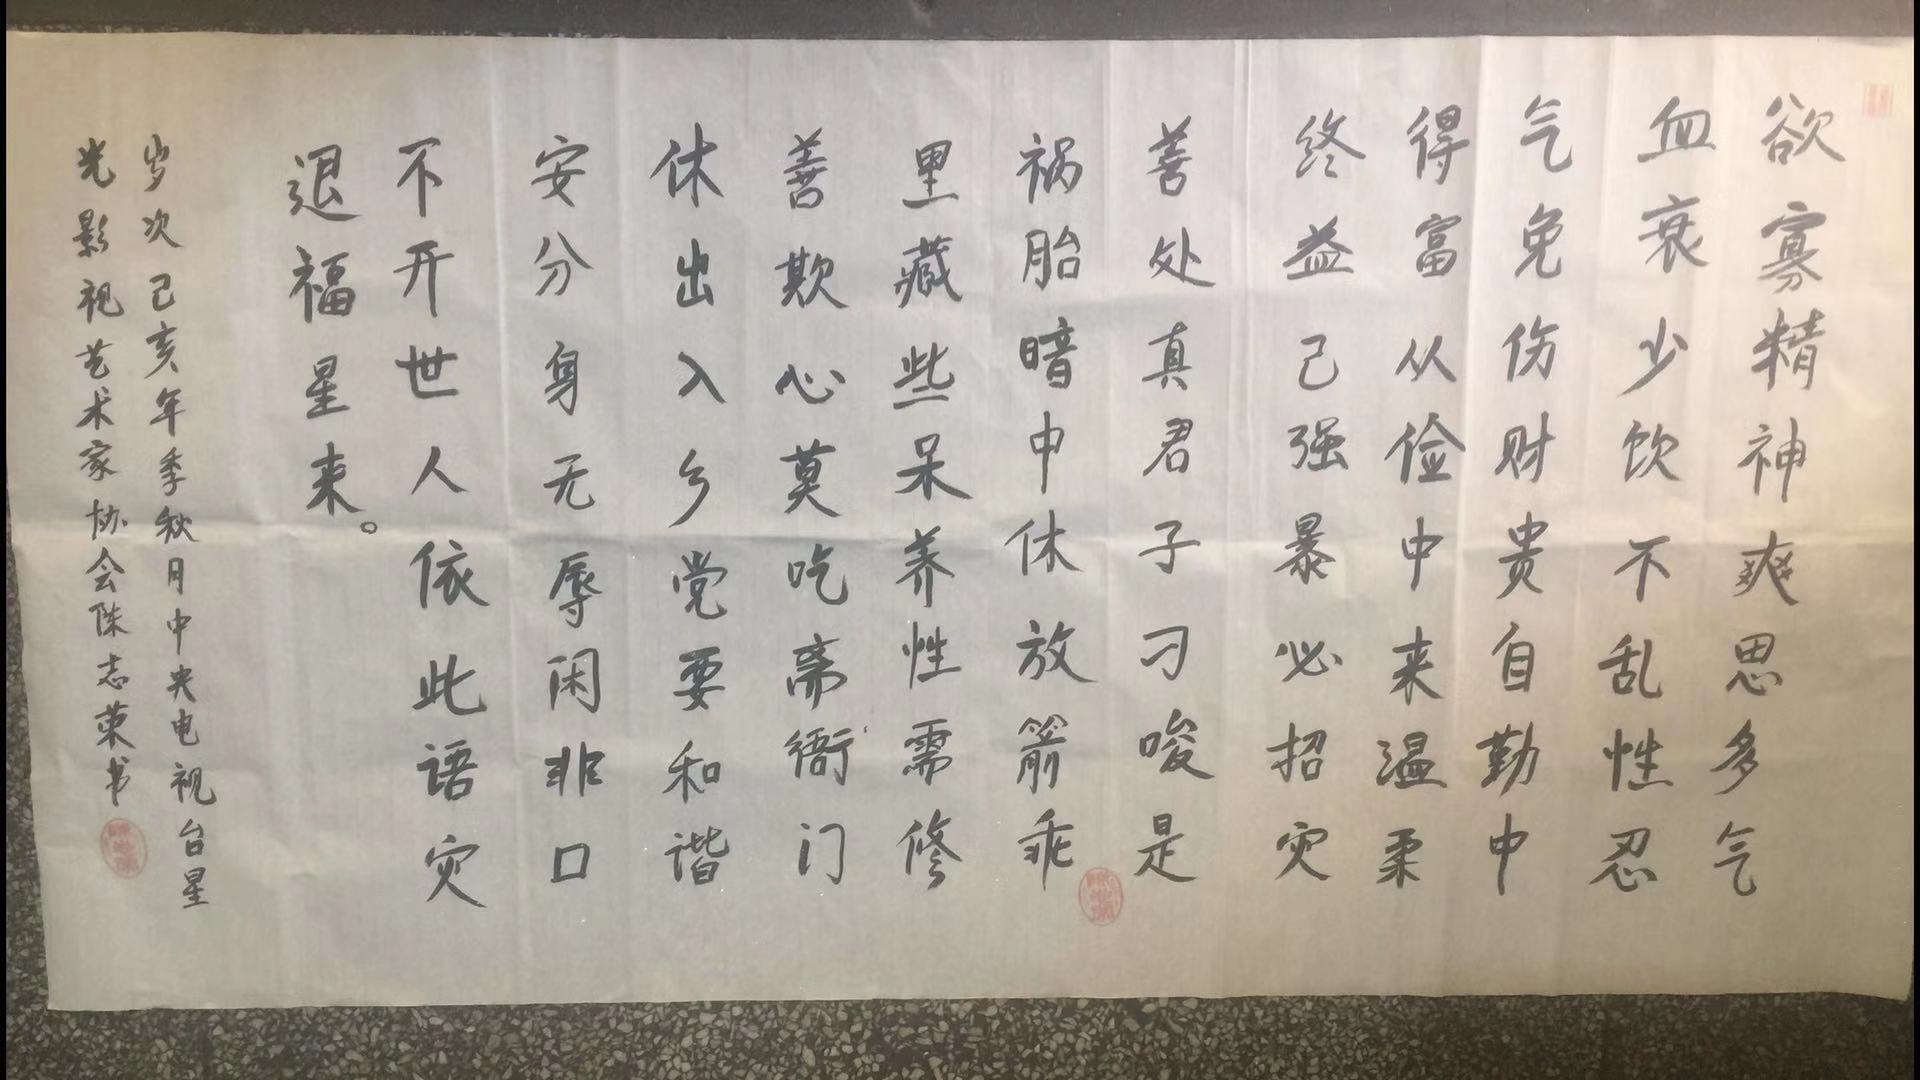 欲寡精神爽思多气
血衰少饮不乱性忍
气免伤财贵自勤中
得富从俭中来温柔
终益己强暴必招灾
善处真君子刁唆是
祸胎暗中休放箭乖
里藏些呆养性需修
善欺心莫吃斋衙门
休出入乡党要和谐
安分身无辱闲非口
不开世人依此语灾
退福星来。
岁次己亥年季秋月中央电视台星
光影视艺术家协会陈志荣书